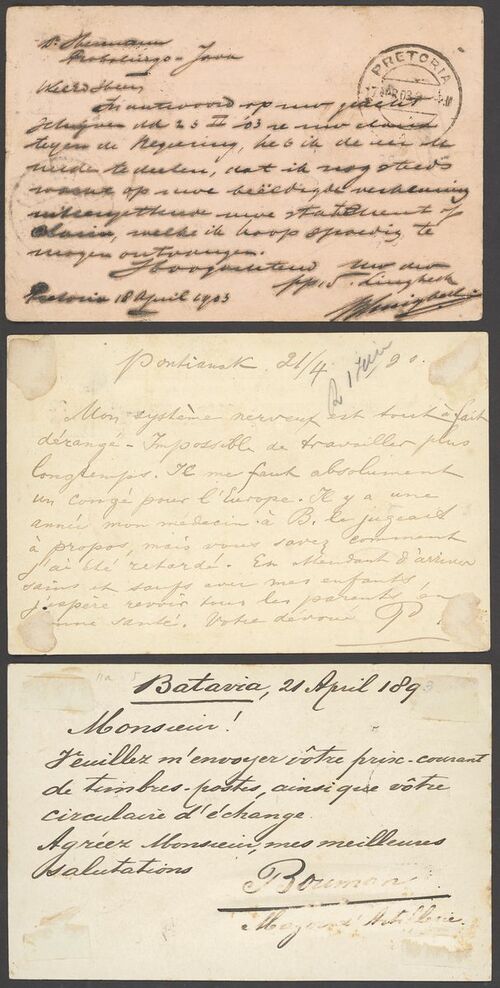 Hermann
Probolingo - Java
PRETORIA
Weled Heer
In antwoord op uw geëerd
schrijven dd 23 II '03 re uw claim
tegen de Regeering, heb ik de eer U
mede te deelen, dat ik nog steeds
wacht op uwe beëedigde verklaring
uiteenzettende uwe statement of
Claim, welke ik hoop spoedig te
mogen ontvangen.
Hoogachtend Uw dw
pp
Pretoria 18 April 1903
Pontianak 21/4 90.
Mon système nerveux est tout à fait
dérangé - Impossible de travailler plus
longtemps. Il me faut absolument
un congé pour l'Europe. Il y a une
année mon médecin à B. le jugeait
à propos, mais vous savez comment
j'ai été retardé. En attendant d'arriver
sains et saufs avec mes enfants
j'espère revoir tous les parents en
bonne santé. Votre dévoué P.
Batavia, 21 April 1893
Monsieur!
Veuillez m'envoyer vôtre prix-courant
de timbres-postes, ainsi que vôtre
circulaire d'échange.
Agréez Monsieur, mes meilleures
salutations
Bouman
Major d'Artillerie.